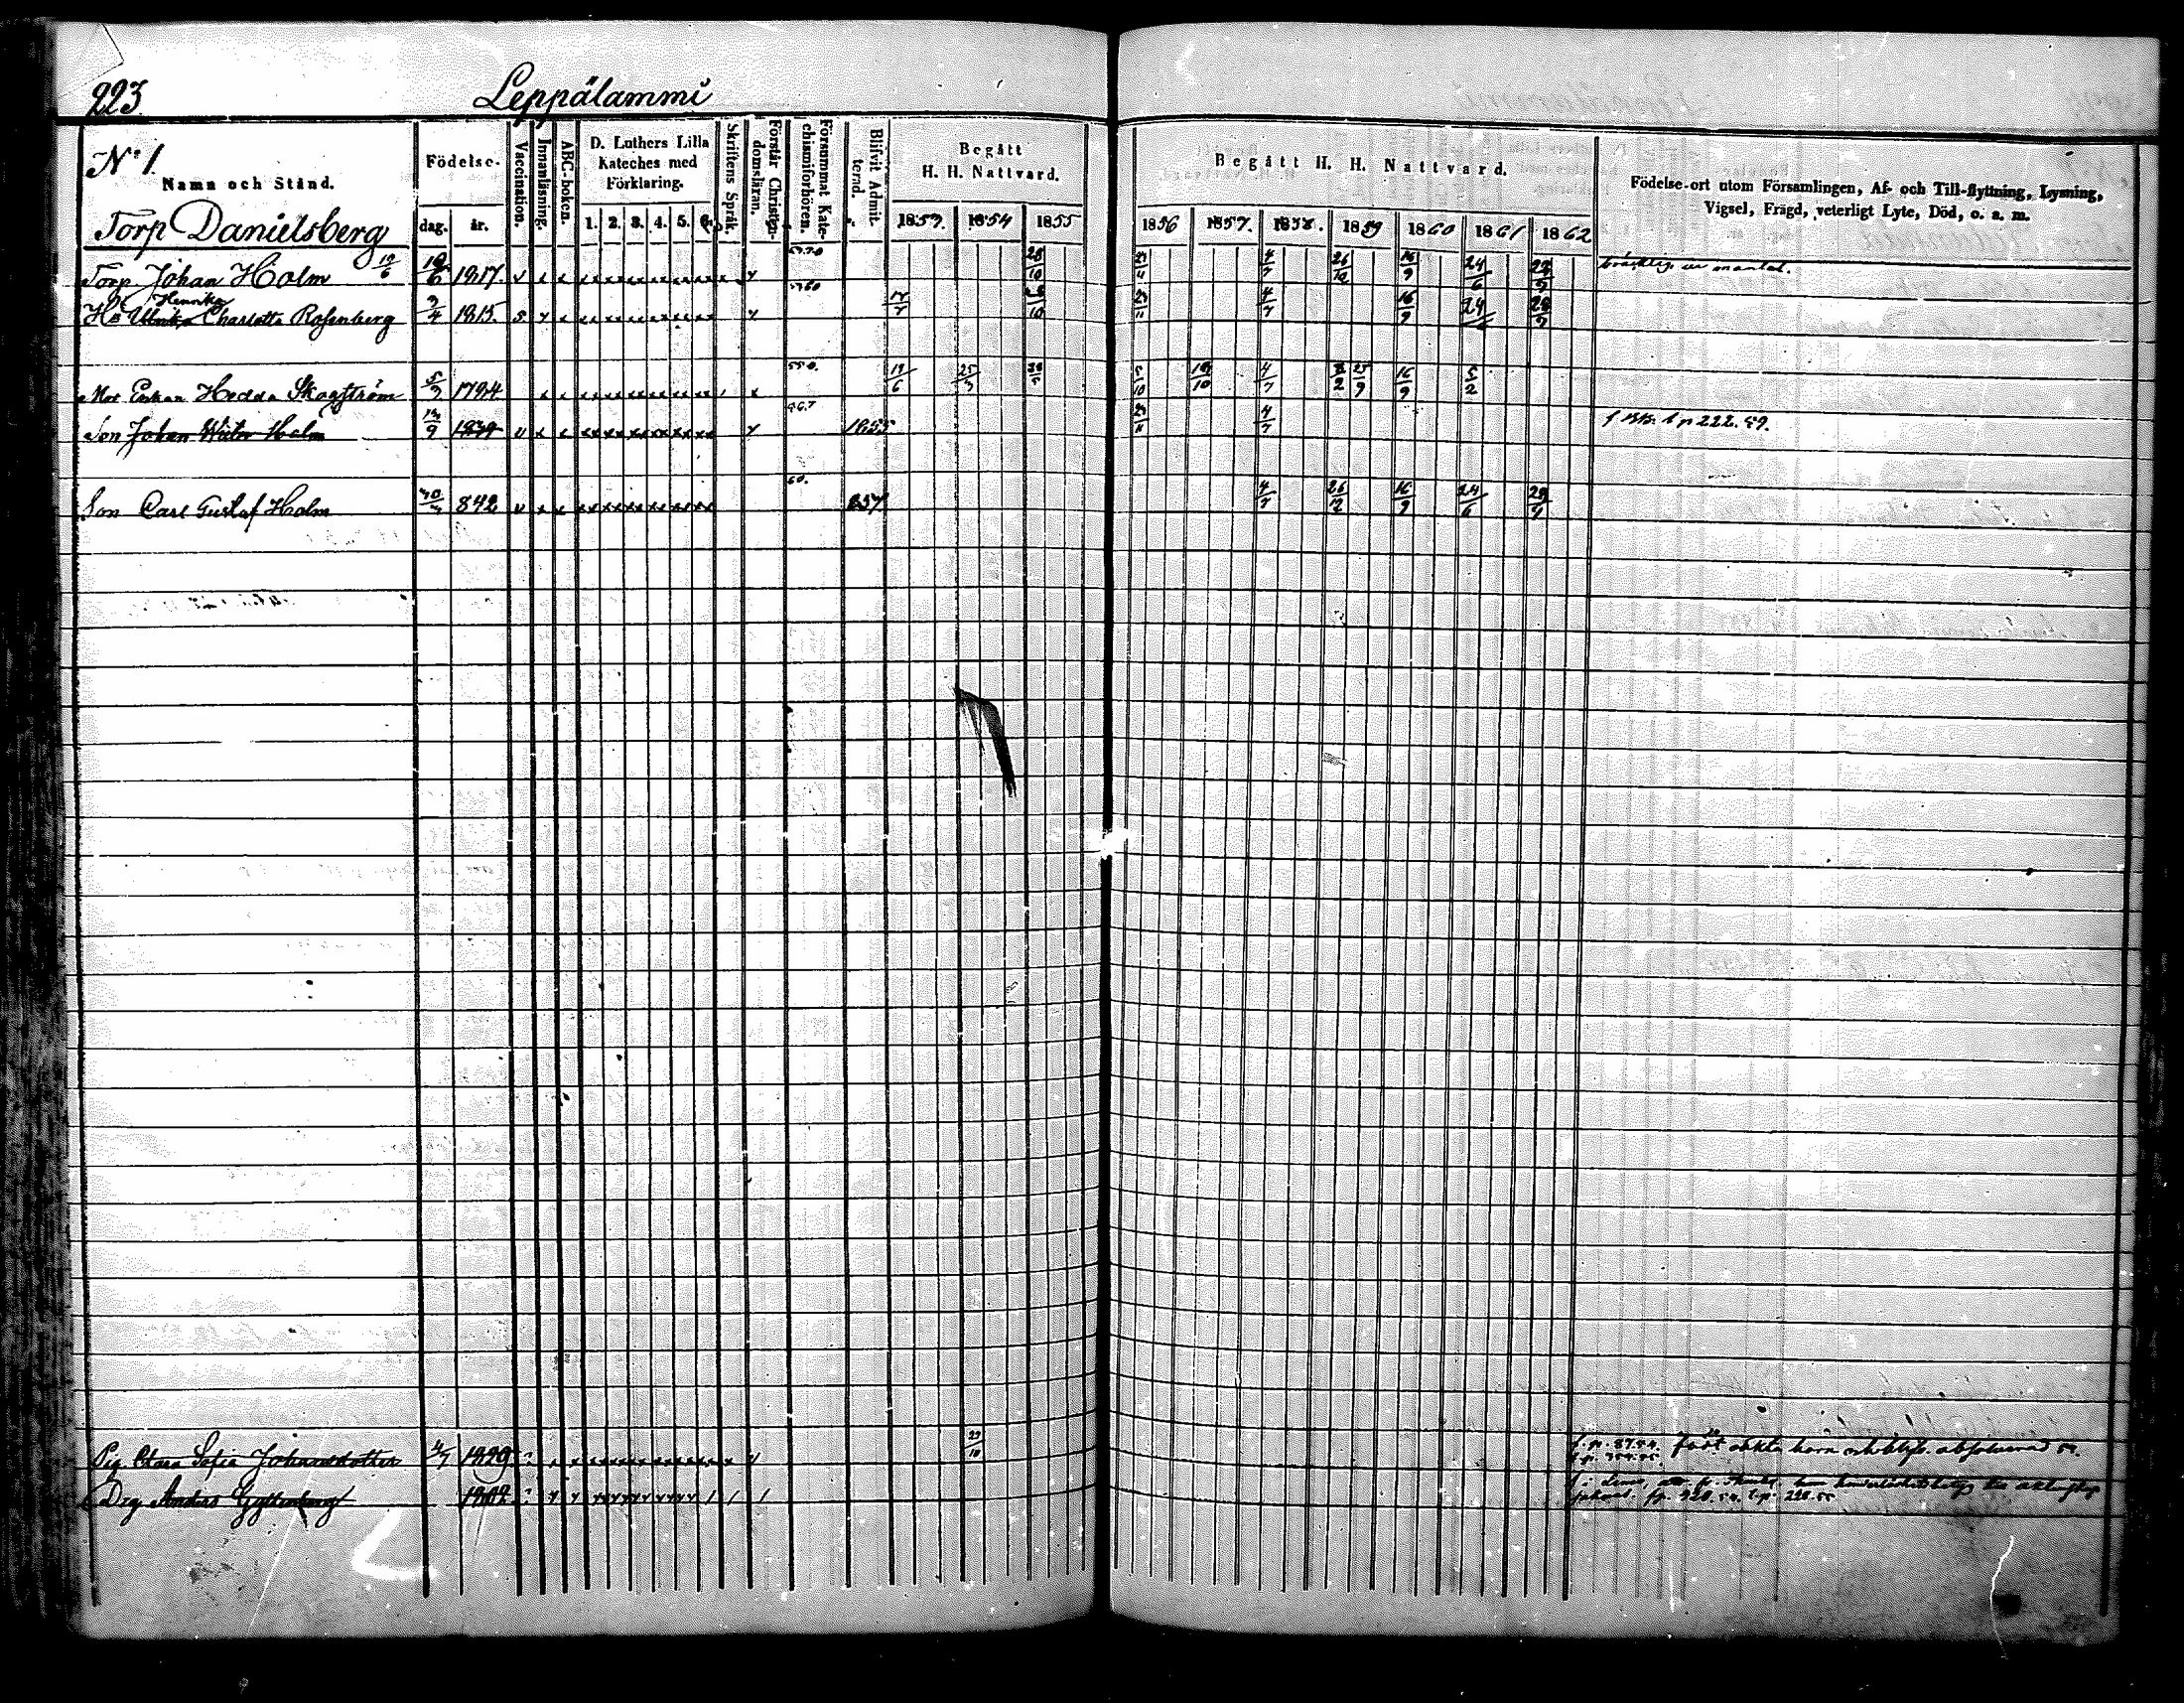 223.
Leppälammi
No 1.
Namn och Stånd.
Födelse-
dag.
år.
Vaccination.
Innanläsning.
ABC-boken.
D. Luthers Lilla
Kateches med
Förklaring.
1. 2. 3. 4. 5. 6.
Skriftens Språk.
Förstår Christen-
domsläran.
Försummat Kate-
chismiförhören.
Blifvit Admit-
terad.
Begått
H. H. Nattvard.
1853. 1854 1855
Begått H. H. Nattvard.
1856 1857. 1858. 1859 1860 1861 1862
Födelse-ort utom Församlingen, Af- och Till-flyttning, Lysning,
Vigsel, Frägd, veterligt Lyte, Död, o. s. m.
Torp Danielsberg
Torp Johan Holm 19/6 1817. 28/10 4/7 26/12 16/9 24/6 28/9
Henrika
Hu Ulrika Charlotta Rosenberg 3/4 1815. 17/7 28/10 4/7 16/9 24/6 28/9
Mor Enkan Hedda Skogström 5/3 1794 19/6 25/3 5/10 18/10 4/7 16/9 5/2
Son Johan Wictor Holm 1839 1855 4/7 p 222. 59.
Son Carl Gustaf Holm 842 60. 857 4/7 26/12 16/9 24/6 28/9
Pig. Clara Sofia Johansdotter 4/7 1829 född äkta absolverad
Drg Anders Gyllenberg 220. 55